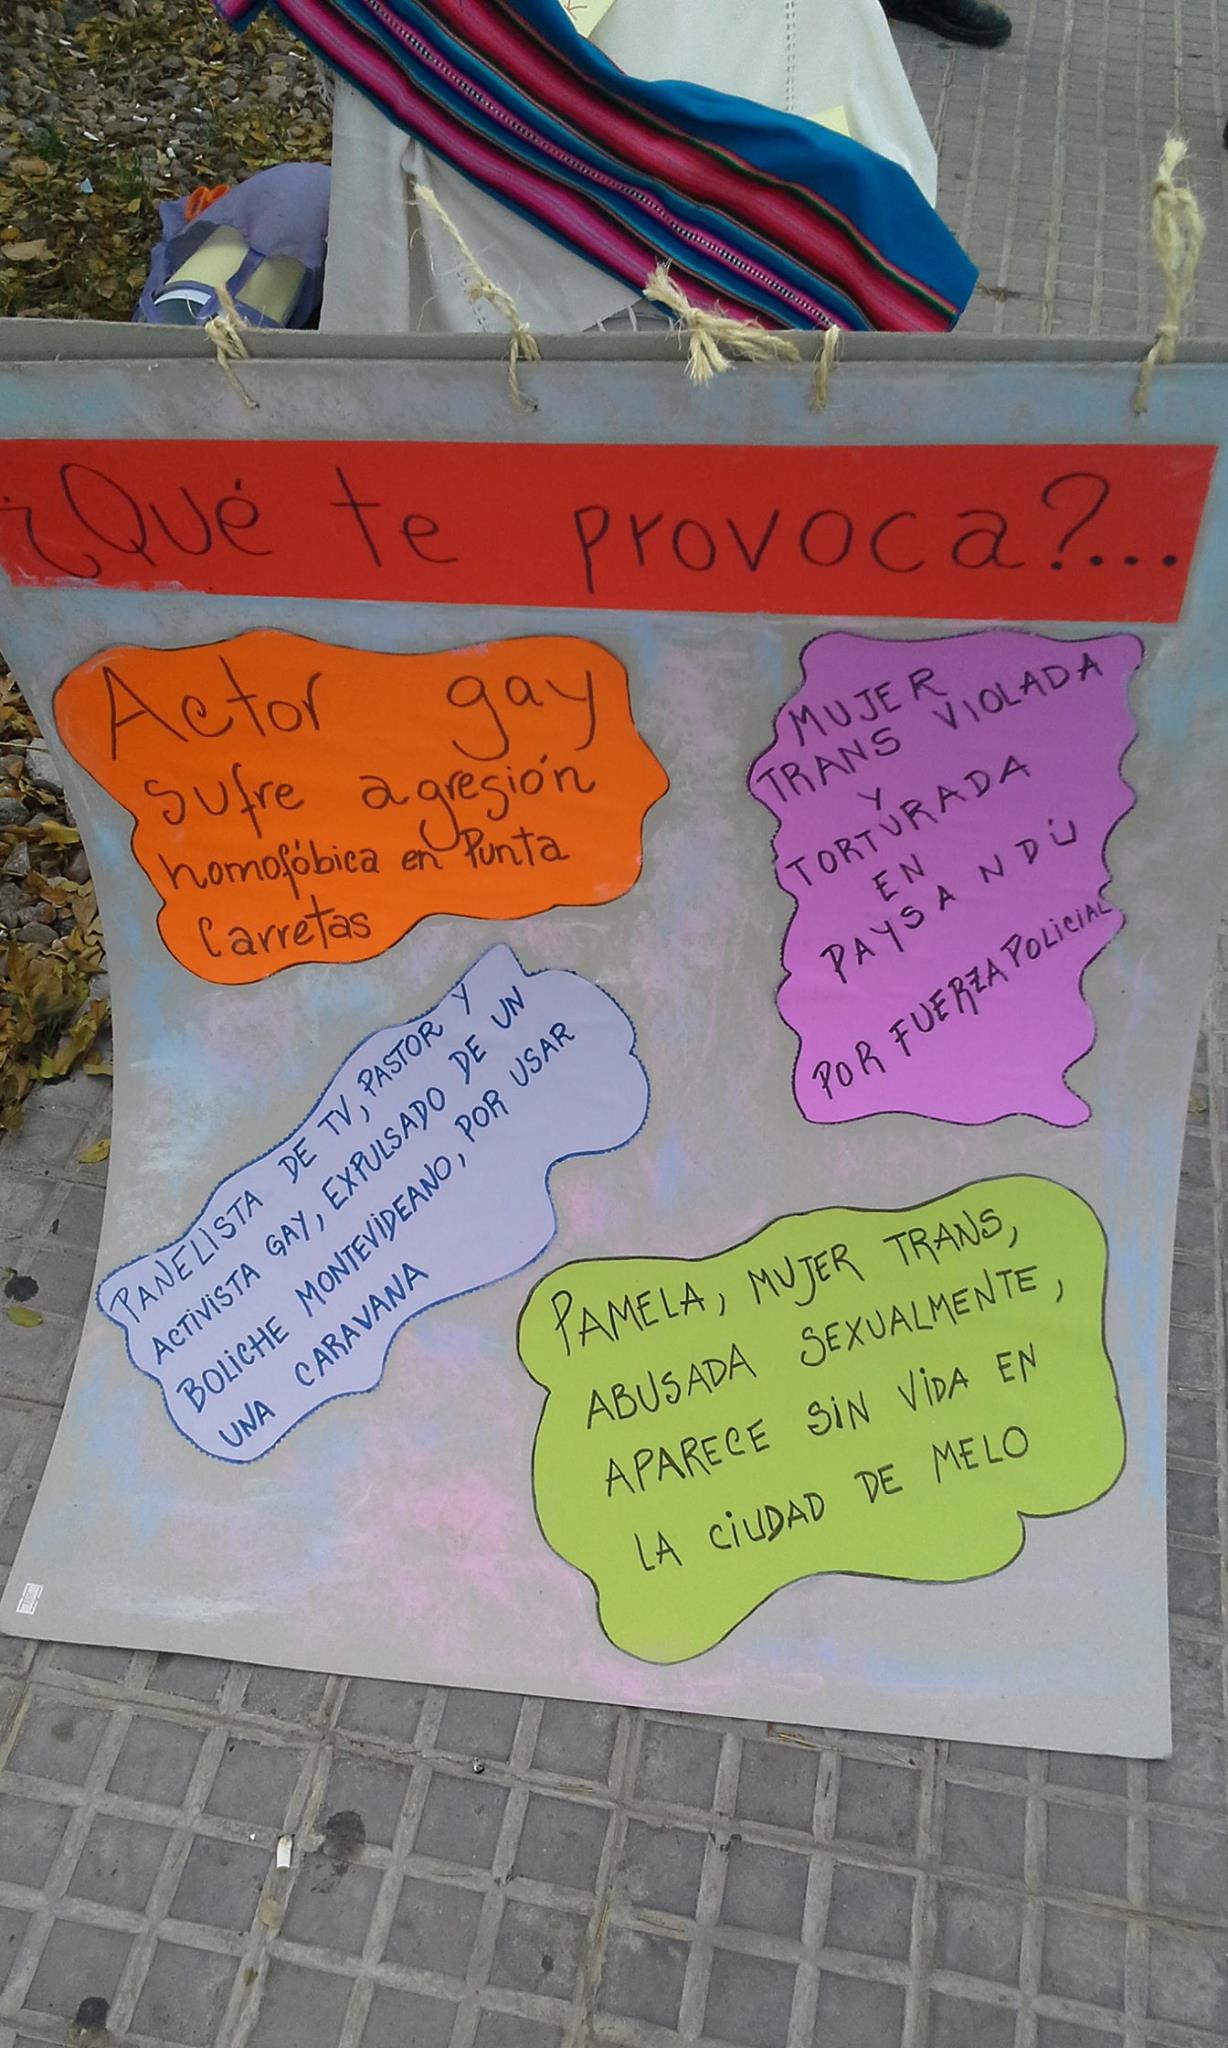 ¿Qué te provoca?...
Actor gay
sufre agresión
homofóbica en Punta
Carretas
MUJER
TRANS VIOLADA
Y
TORTURADA
EN
PAYSANDÚ
POR FUERZA POLICIAL
PANELISTA DE TV, PASTOR Y
ACTIVISTA GAY, EXPULSADO DE UN
BOLICHE MONTEVIDEANO, POR USAR
UNA CARAVANA
PAMELA, MUJER TRANS,
ABUSADA SEXUALMENTE,
APARECE SIN VIDA EN
LA CIUDAD DE MELO